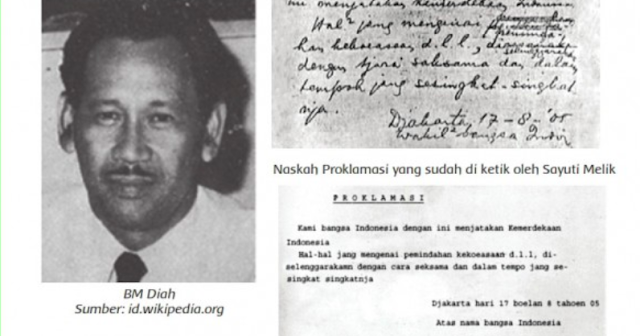 ini menjatakan kemerdekaan Indonesia
Hal² jang mengenai
kekoeasaan d.l.l.,
dengan tjara saksama dan dalam
tempoh jang sesingkat-singkat
nja.
Djakarta 17 - 8 - '05
Wakil² bangsa Indon
Naskah Proklamasi yang sudah di ketik oleh Sayuti Melik
P R O K L A M A S I
Kami bangsa Indonesia dengan ini menjatakan Kemerdekaan
Indonesia
Hal-hal jang mengenai pemindahan kekoeasaan d.l.l, di-
selenggarakamn dengan cara seksama dan dalam tempo jang se-
singkat singkatnja
Djakarta hari 17 boelan 8 tahoen 05
Atas nama bangsa Indonesia
BM Diah
Sumber: id.wikipedia.org